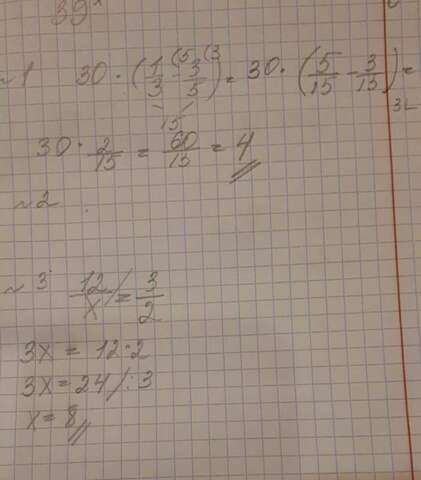 №1 30 · (1/3 - 3/5) = 30 · (5/15 - 3/15) =
15
30 · 2/15 = 60/15 = 4
№2
№3 12/x = 3/2
3x = 12 · 2
3x = 24 /:3
x = 8